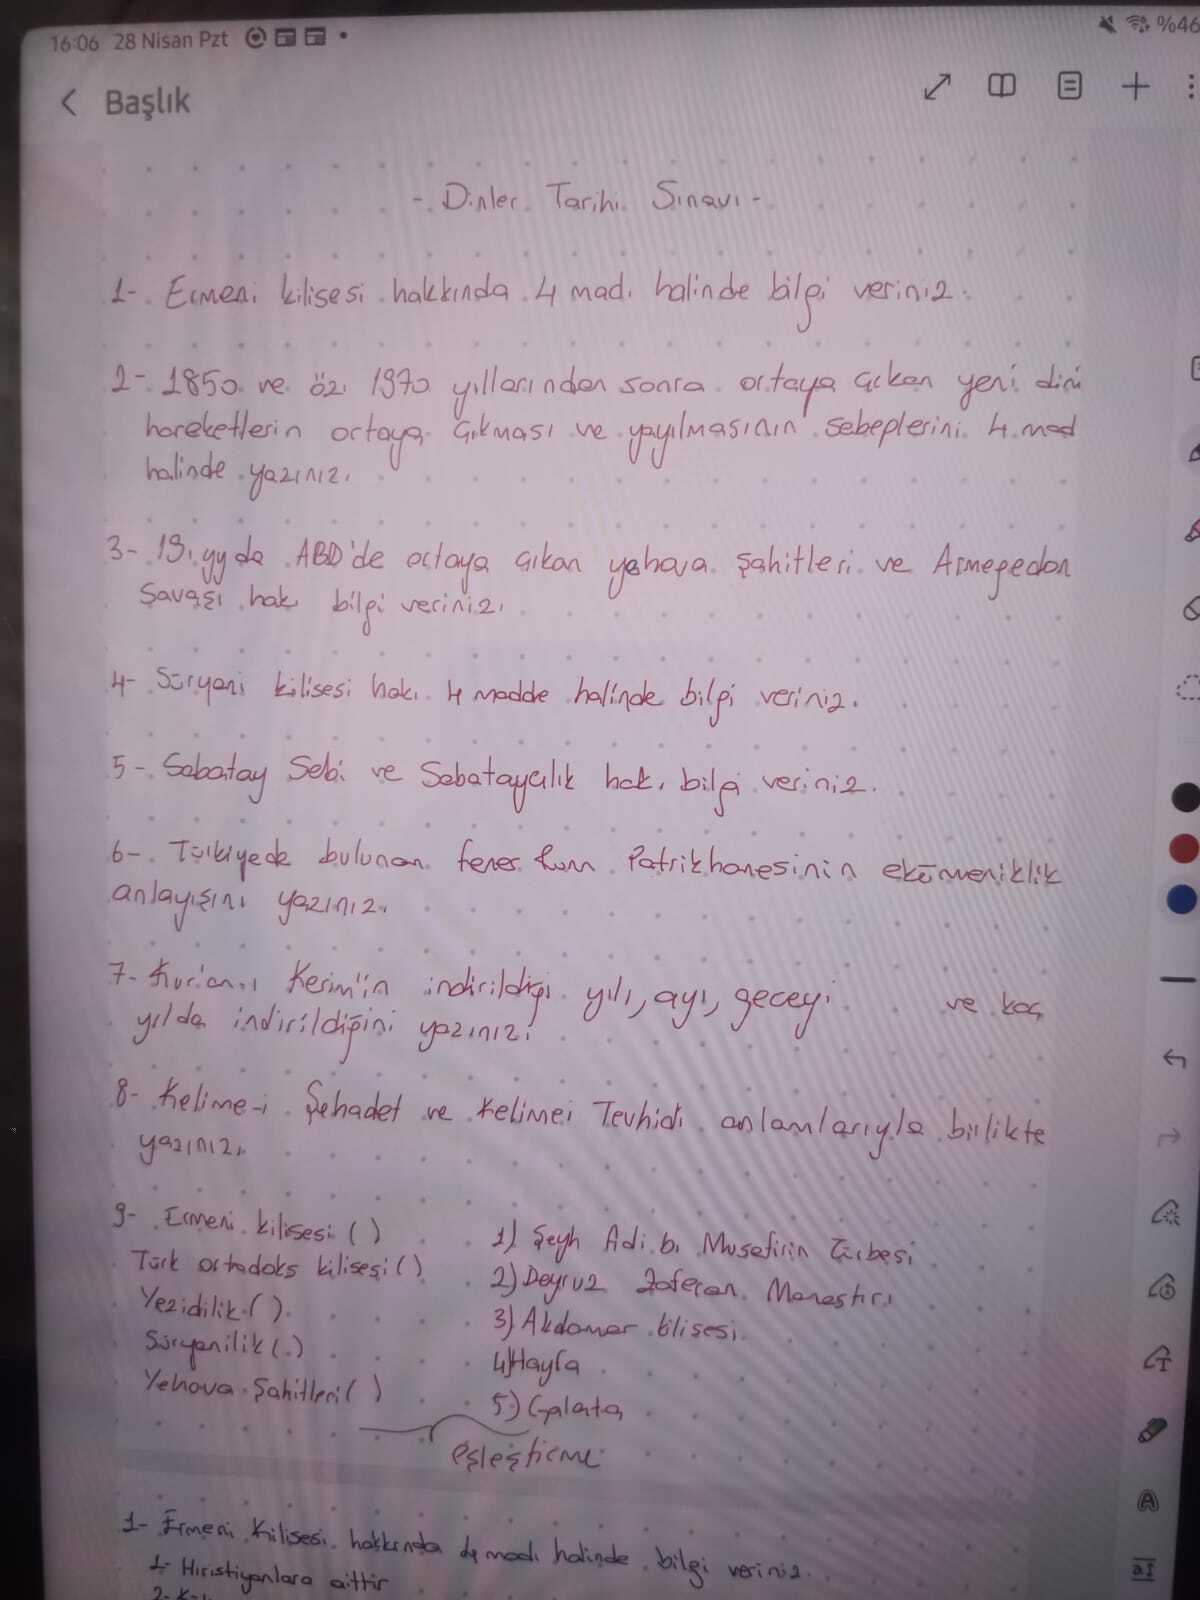 16:06 28 Nisan Pzt
%46
Başlık
- Dinler Tarihi Sınavı -
1- Ermeni kilisesi hakkında 4 mad. halinde bilgi veriniz.
2- 1850 ve öz. 1970 yıllarından sonra ortaya çıkan yeni dini
hareketlerin ortaya çıkması ve yayılmasının sebeplerini 4 mad
halinde yazınız.
3- 19. yy da ABD'de ortaya çıkan yehova şahitleri ve Armegedon
Savaşı hak. bilgi veriniz.
4- Süryani kilisesi hak. 4 madde halinde bilgi veriniz.
5- Sabatay Sebi ve Sabataycılık hak. bilgi veriniz.
6- Türkiyede bulunan fener Rum Patrikhanesinin ekümeniklik
anlayışını yazınız.
7- Kur'an-ı Kerim'in indirildiği yılı, ayı, geceyi ve kaç
yılda indirildiğini yazınız.
8- Kelime-i Şehadet ve Kelimei Tevhidi anlamlarıyla birlikte
yazınız.
9- Ermeni kilisesi ( ) 1) Şeyh Adi b. Musafirin Türbesi
Türk ortodoks kilisesi ( ) 2) Deyruz Zaferan Manastırı
Yezidilik ( ) 3) Akdamar kilisesi
Süryanilik ( ) 4) Hayfa
Yehova Şahitleri ( ) 5) Galata
eşleştirme
1- Ermeni Kilisesi hakkında 4 mad. halinde bilgi veriniz.
1- Hıristiyanlara aittir